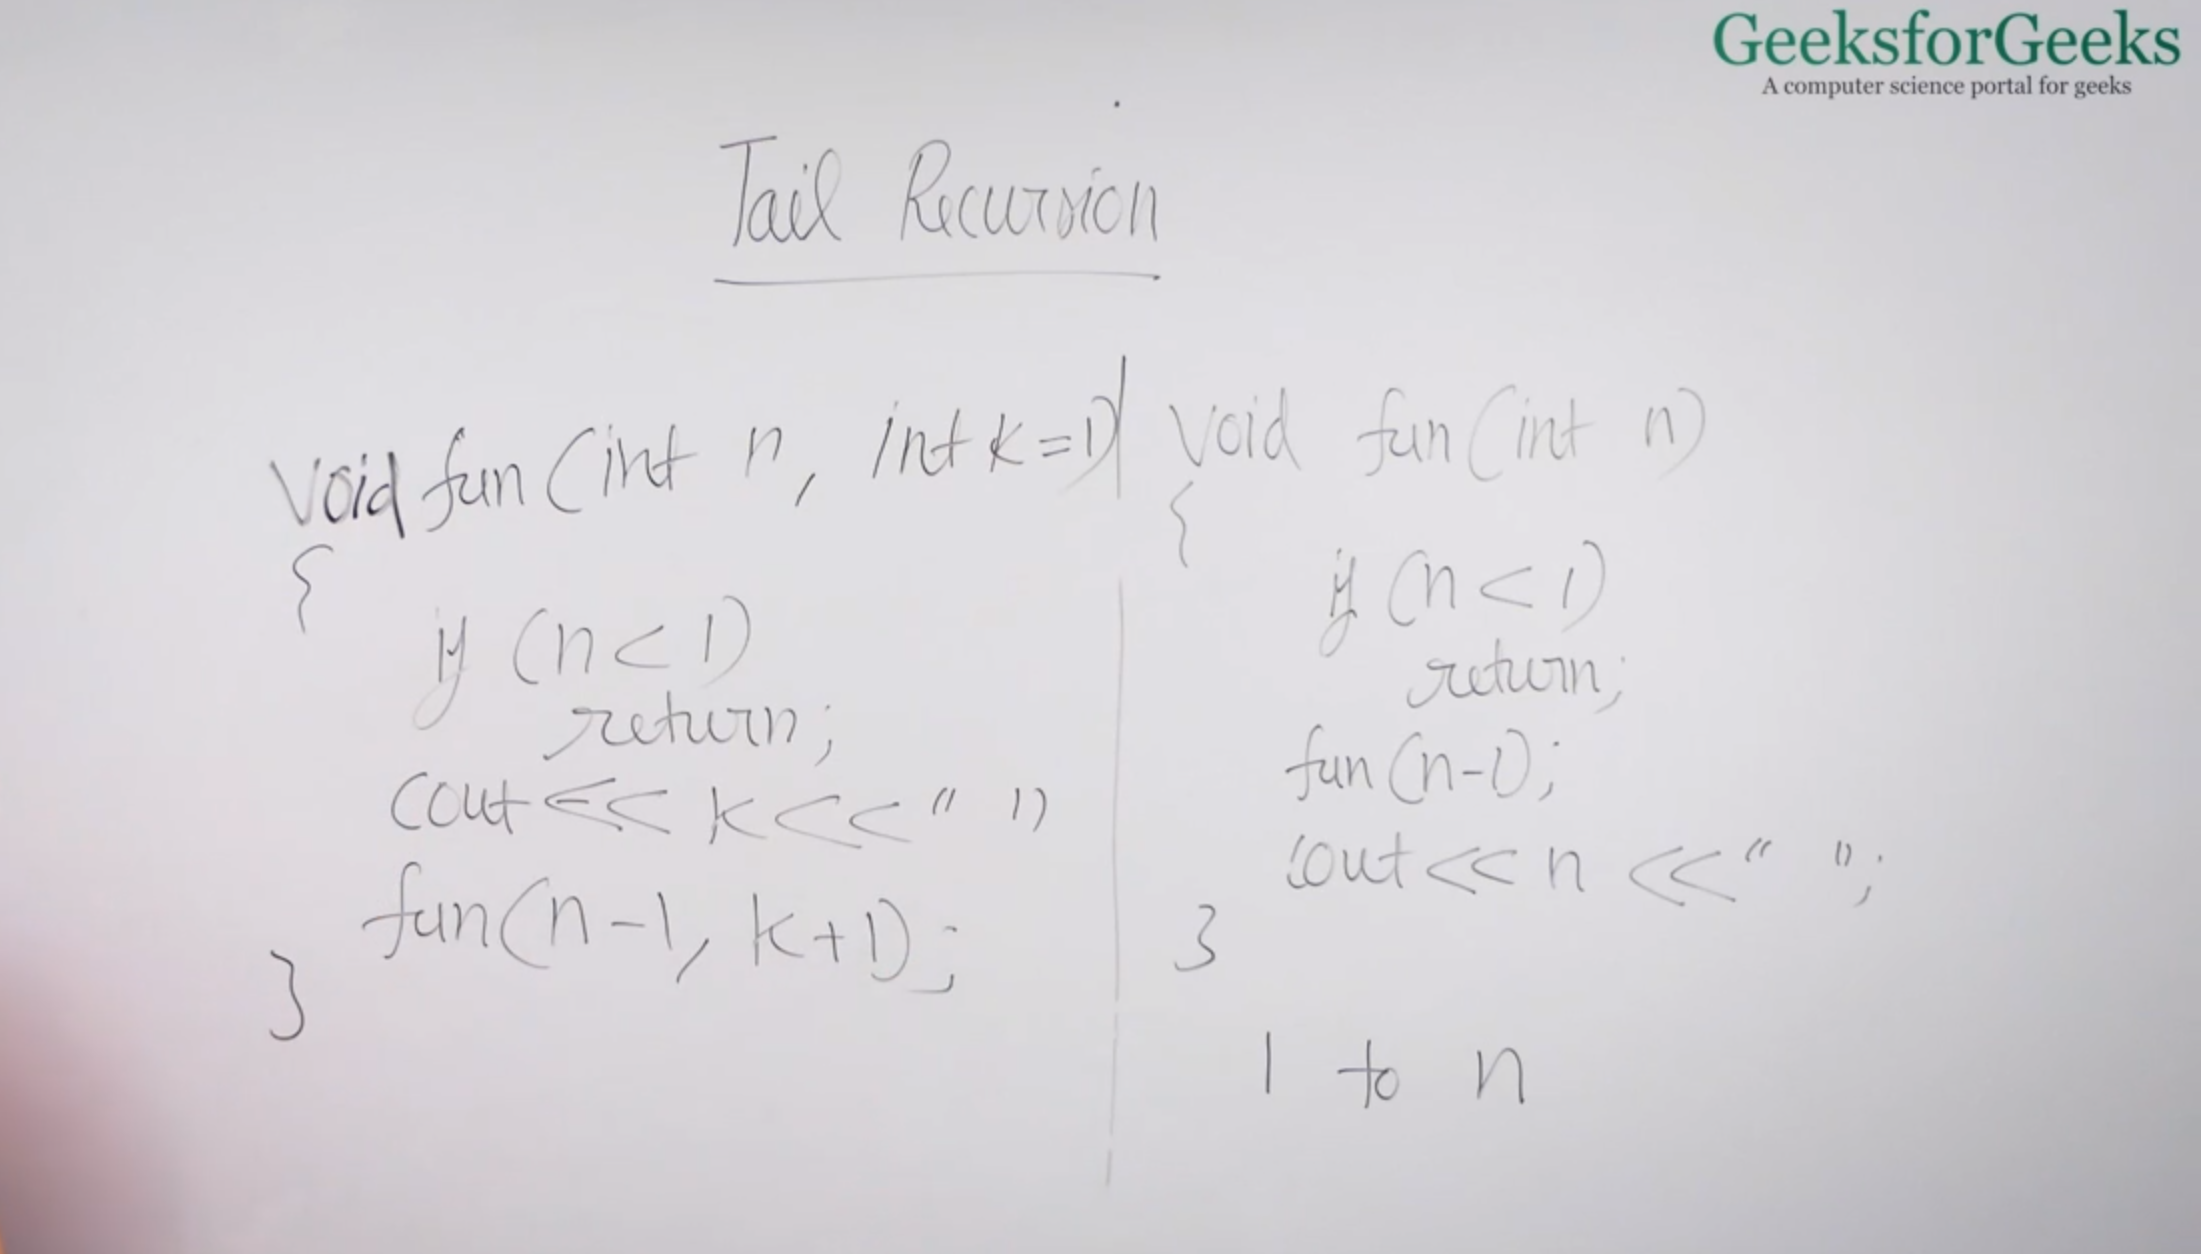 GeeksforGeeks
A computer science portal for geeks
Tail Recursion
Void fun(int n, int k=1)
{
if (n<1)
return;
cout<<k<<" "
fun(n-1, k+1);
}
Void fun(int n)
{
if (n<1)
return;
fun(n-1);
cout<<n<<" ";
}
1 to n